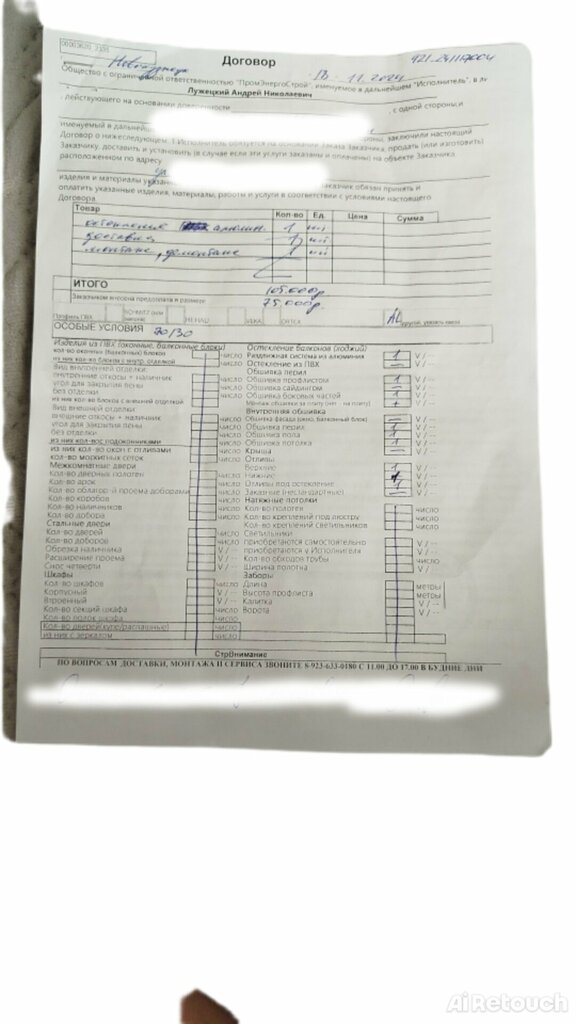 Договор
Новокузнецк
18.11.2024
Общество с ограниченной ответственностью "ПромЭнергоСтрой", именуемое в дальнейшем "Исполнитель", в л
Лужецкий Андрей Николаевич
действующего на основании доверенности
, с одной стороны,и
именуемый в дальнейшем
стороны, заключили настоящий
Договор о нижеследующем: 1.Исполнитель обязуется на основании Заказа Заказчика, продать (или изготовить)
Заказчику, доставить и установить (в случае если эти услуги заказаны и оплачены) на объекте Заказчика,
расположенном по адресу
изделия и материалы
Заказчик обязан принять и
оплатить указанные изделия, материалы, работы и услуги в соответствии с условиями настоящего
Договора.
Товар Кол-во Ед. Цена Сумма
остекление алюмин. 1 шт
доставка, 1 шт
монтаж, демонтаж 1 шт
ИТОГО 105.000р
Заказчиком внесена предоплата в размере: 75.000р.
Профиль ПВХ REHAU AL другой, указать какой
ОСОБЫЕ УСЛОВИЯ 70/30
Изделия из ПВХ (оконные, балконные блоки) Остекление балконов (лоджий)
кол-во оконных (балконных) блоков число Раздвижная система из алюминия 1 V / --
из них кол-во блоков с внутр. отделкой число Остекление из ПВХ — V / --
Вид внутренней отделки: Обшивка перил
внутренние откосы + наличник число Обшивка профлистом 1 V / --
угол для закрытия пены число Обшивка сайдингом — V / --
без отделки число Обшивка боковых частей 1 V / --
из них кол-во блоков с внешней отделкой число
Вид внешней отделки: Внутренняя обшивка
внешние откосы + наличник число Обшивка фасада (окно, балконный блок) — V / --
угол для закрытия пены число Обшивка перил 1 V / --
без отделки число Обшивка пола 1 V / --
из них кол-вос подоконниками число Обшивка потолка 1 V / --
из них кол-во окон с отливами число Крыша — V / --
кол-во москитных сеток число Отливы
Межкомнатные двери Верхние 1 V / --
Кол-во дверных полотен число Нижние V / --
Кол-во арок число Отливы под остекление 1 V / --
Кол-во облагор-й проема доборами число Заказные (нестандартные) — V / --
Кол-во коробов число Натяжные потолки
Кол-во наличников число Кол-во полотен число
Кол-во добора число Кол-во креплений под люстру число
Стальные двери Кол-во креплений светильников число
Кол-во дверей число Светильники
Кол-во доборов число приобретаются самостоятельно V / --
Обрезка наличника V / -- приобретаются у Исполнителя V / --
Расширение проема V / -- Кол-во обходов трубы число
Снос четверти V / -- Ширина полотна V / --
Шкафы Заборы
Кол-во шкафов число Длина метры
Корпусный V / -- Высота профлиста метры
Встроенный V / -- Калитка V / --
Кол-во секций шкафа число Ворота V / --
Кол-во полок шкафа число
Кол-во дверей(купе/распашные) число
из них с зеркалом число
СтрВнимание
ПО ВОПРОСАМ ДОСТАВКИ, МОНТАЖА И СЕРВИСА ЗВОНИТЕ 8-923-633-0180 С 11.00 ДО 17.00 В БУДНИЕ ДНИ
AiRetouch